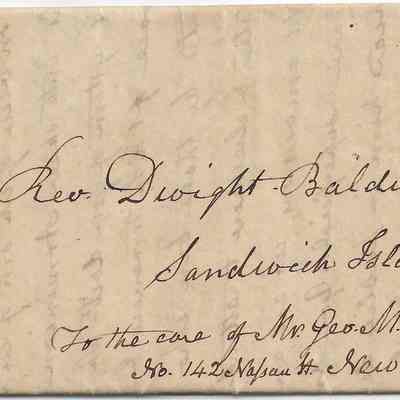 Rev. Dwight Baldw
Sandwich Isla
To the care of Mr. Geo. M.
No. 142 Nassau St. New